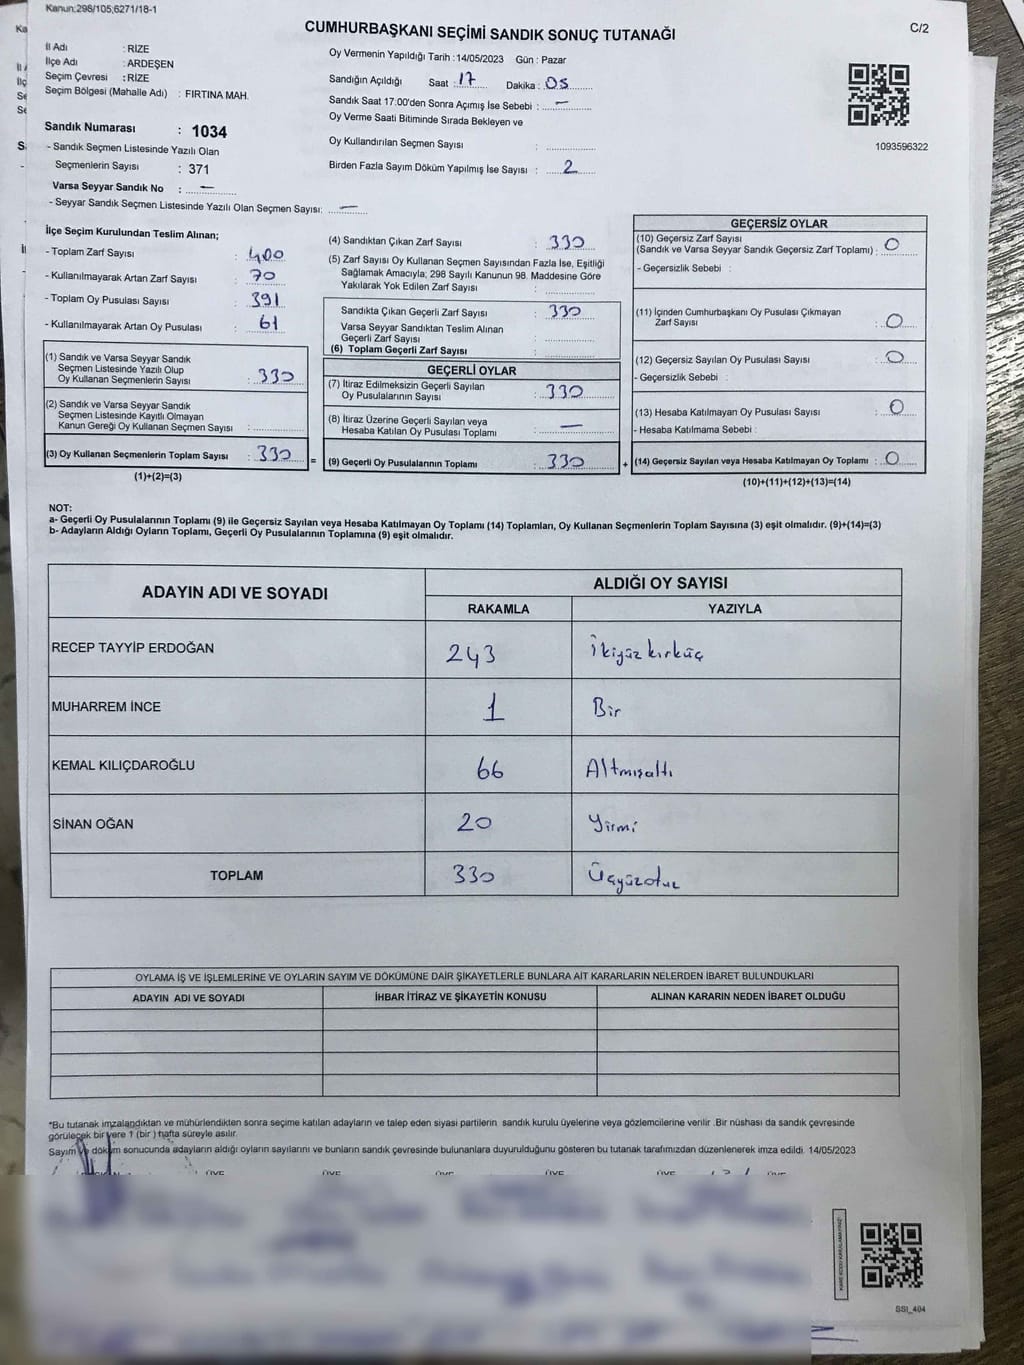 Kanun:298/105;6271/18-1
CUMHURBAŞKANI SEÇİMİ SANDIK SONUÇ TUTANAĞI
C/2
İl Adı : RİZE
İlçe Adı : ARDEŞEN
Seçim Çevresi : RİZE
Seçim Bölgesi (Mahalle Adı) : FIRTINA MAH.
Sandık Numarası : 1034
- Sandık Seçmen Listesinde Yazılı Olan
Seçmenlerin Sayısı : 371
Varsa Seyyar Sandık No : —
- Seyyar Sandık Seçmen Listesinde Yazılı Olan Seçmen Sayısı: —
Oy Vermenin Yapıldığı Tarih : 14/05/2023 Gün : Pazar
Sandığın Açıldığı Saat : 17 Dakika : 05
Sandık Saat 17:00'den Sonra Açımış İse Sebebi : —
Oy Verme Saati Bitiminde Sırada Bekleyen ve
Oy Kullandırılan Seçmen Sayısı :
Birden Fazla Sayım Döküm Yapılmış İse Sayısı : 2
1093596322
İlçe Seçim Kurulundan Teslim Alınan;
- Toplam Zarf Sayısı : 400
- Kullanılmayarak Artan Zarf Sayısı : 70
- Toplam Oy Pusulası Sayısı : 391
- Kullanılmayarak Artan Oy Pusulası : 61
(1) Sandık ve Varsa Seyyar Sandık
Seçmen Listesinde Yazılı Olup
Oy Kullanan Seçmenlerin Sayısı : 330
(2) Sandık ve Varsa Seyyar Sandık
Seçmen Listesinde Kayıtlı Olmayan
Kanun Gereği Oy Kullanan Seçmen Sayısı :
(3) Oy Kullanan Seçmenlerin Toplam Sayısı : 330
(1)+(2)=(3)
=
(4) Sandıktan Çıkan Zarf Sayısı : 330
(5) Zarf Sayısı Oy Kullanan Seçmen Sayısından Fazla İse, Eşitliği
Sağlamak Amacıyla; 298 Sayılı Kanunun 98. Maddesine Göre
Yakılarak Yok Edilen Zarf Sayısı :
Sandıkta Çıkan Geçerli Zarf Sayısı : 330
Varsa Seyyar Sandıktan Teslim Alınan
Geçerli Zarf Sayısı :
(6) Toplam Geçerli Zarf Sayısı :
GEÇERLİ OYLAR
(7) İtiraz Edilmeksizin Geçerli Sayılan
Oy Pusulalarının Sayısı : 330
(8) İtiraz Üzerine Geçerli Sayılan veya
Hesaba Katılan Oy Pusulası Toplamı : —
(9) Geçerli Oy Pusulalarının Toplamı : 330
+
GEÇERSİZ OYLAR
(10) Geçersiz Zarf Sayısı
(Sandık ve Varsa Seyyar Sandık Geçersiz Zarf Toplamı) : 0
- Geçersizlik Sebebi :
(11) İçinden Cumhurbaşkanı Oy Pusulası Çıkmayan
Zarf Sayısı : 0
(12) Geçersiz Sayılan Oy Pusulası Sayısı : 0
- Geçersizlik Sebebi :
(13) Hesaba Katılmayan Oy Pusulası Sayısı : 0
- Hesaba Katılmama Sebebi :
(14) Geçersiz Sayılan veya Hesaba Katılmayan Oy Toplamı : 0
(10)+(11)+(12)+(13)=(14)
NOT:
a- Geçerli Oy Pusulalarının Toplamı (9) ile Geçersiz Sayılan veya Hesaba Katılmayan Oy Toplamı (14) Toplamları, Oy Kullanan Seçmenlerin Toplam Sayısına (3) eşit olmalıdır. (9)+(14)=(3)
b- Adayların Aldığı Oyların Toplamı, Geçerli Oy Pusulalarının Toplamına (9) eşit olmalıdır.
ADAYIN ADI VE SOYADI ALDIĞI OY SAYISI
RAKAMLA YAZIYLA
RECEP TAYYİP ERDOĞAN 243 İkiyüzkırküç
MUHARREM İNCE 1 Bir
KEMAL KILIÇDAROĞLU 66 Altmışaltı
SİNAN OĞAN 20 Yirmi
TOPLAM 330 Üçyüzotuz
OYLAMA İŞ VE İŞLEMLERİNE VE OYLARIN SAYIM VE DÖKÜMÜNE DAİR ŞİKAYETLERLE BUNLARA AİT KARARLARIN NELERDEN İBARET BULUNDUKLARI
ADAYIN ADI VE SOYADI İHBAR İTİRAZ VE ŞİKAYETİN KONUSU ALINAN KARARIN NEDEN İBARET OLDUĞU
*Bu tutanak imzalandıktan ve mühürlendikten sonra seçime katılan adayların ve talep eden siyasi partilerin sandık kurulu üyelerine veya gözlemcilerine verilir .Bir nüshası da sandık çevresinde
görülecek bir yere 1 (bir ) hafta süreyle asılır.
Sayım ve döküm sonucunda adayların aldığı oyların sayılarını ve bunların sandık çevresinde bulunanlara duyurulduğunu gösteren bu tutanak tarafımızdan düzenlenerek imza edildi. 14/05/2023
SSI_404